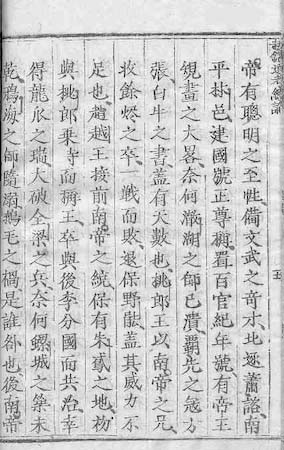 帝有聰明之至性備文武之奇才北逐蕭諮南
平林邑建國號正尊稱置百官紀年號有帝王
規畫之大畧奈何澂湖之師已潰霸先之寇方
張白牛之書蓋有天數也桃郎王以南帝之兄
收餘燼之卒一戰而敗退保野能蓋其威力不
足也趙越王接前南帝之統保有朱鳶之地初
與桃郎乘時而稱王卒與後李分國而共治幸
得龍爪之瑞大破全梁之兵奈何螺城之築未
乾鴉海之師隨溺鵝毛之禍是誰卻也後南帝
五